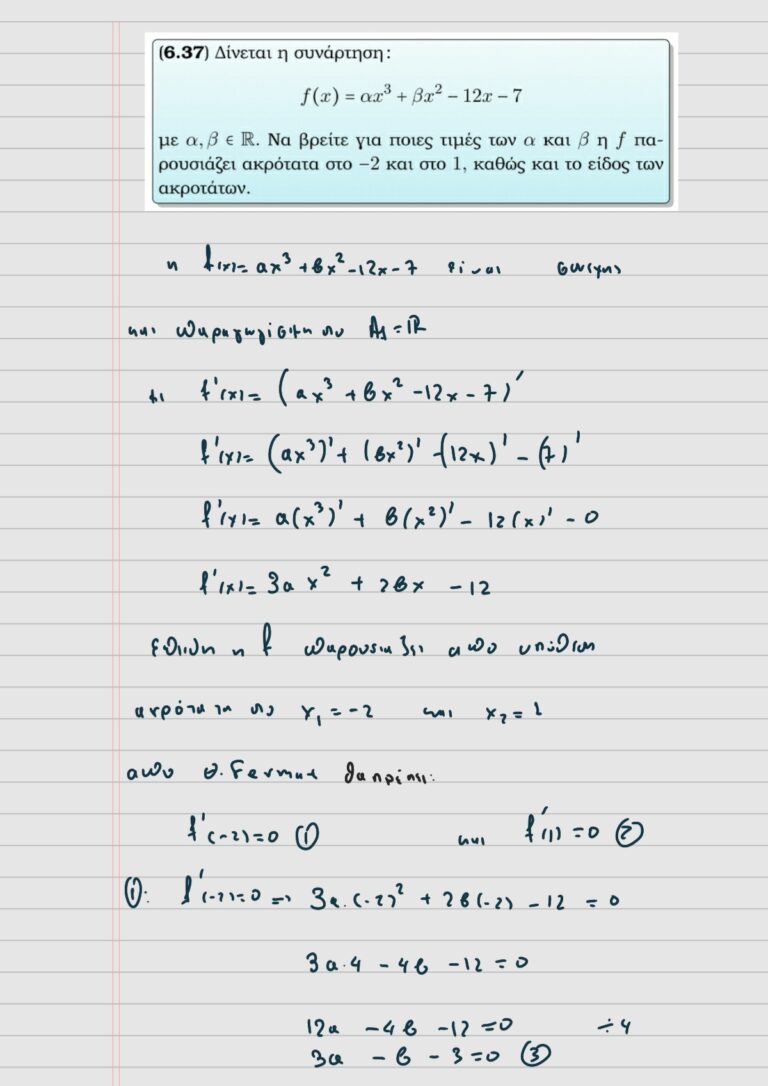 (6.37) Δίνεται η συνάρτηση:
f(x) = αx³ + βx² − 12x − 7
με α, β ∈ ℝ. Να βρείτε για ποιες τιμές των α και β η f πα-
ρουσιάζει ακρότατα στο −2 και στο 1, καθώς και το είδος των
ακροτάτων.
η f(x)= αx³ + βx² - 12x - 7 είναι συνεχης
και παραγωγίσιμη στο Af = ℝ
f'(x) = (αx³ + βx² - 12x - 7)'
f'(x) = (αx³)' + (βx²)' - (12x)' - (7)'
f'(x) = α(x³)' + β(x²)' - 12(x)' - 0
f'(x) = 3α x² + 2βx - 12
Επειδη η f παρουσιαζει απο υπόθεση
ακρότατα στο x₁ = -2 και x₂ = 1
απο Θ. Fermat θα πρέπει:
f'(-2) = 0 ① και f'(1) = 0 ②
①: f'(-2) = 0 => 3α·(-2)² + 2β(-2) - 12 = 0
3α·4 - 4β - 12 = 0
12α - 4β - 12 = 0 ÷4
3α - β - 3 = 0 ③